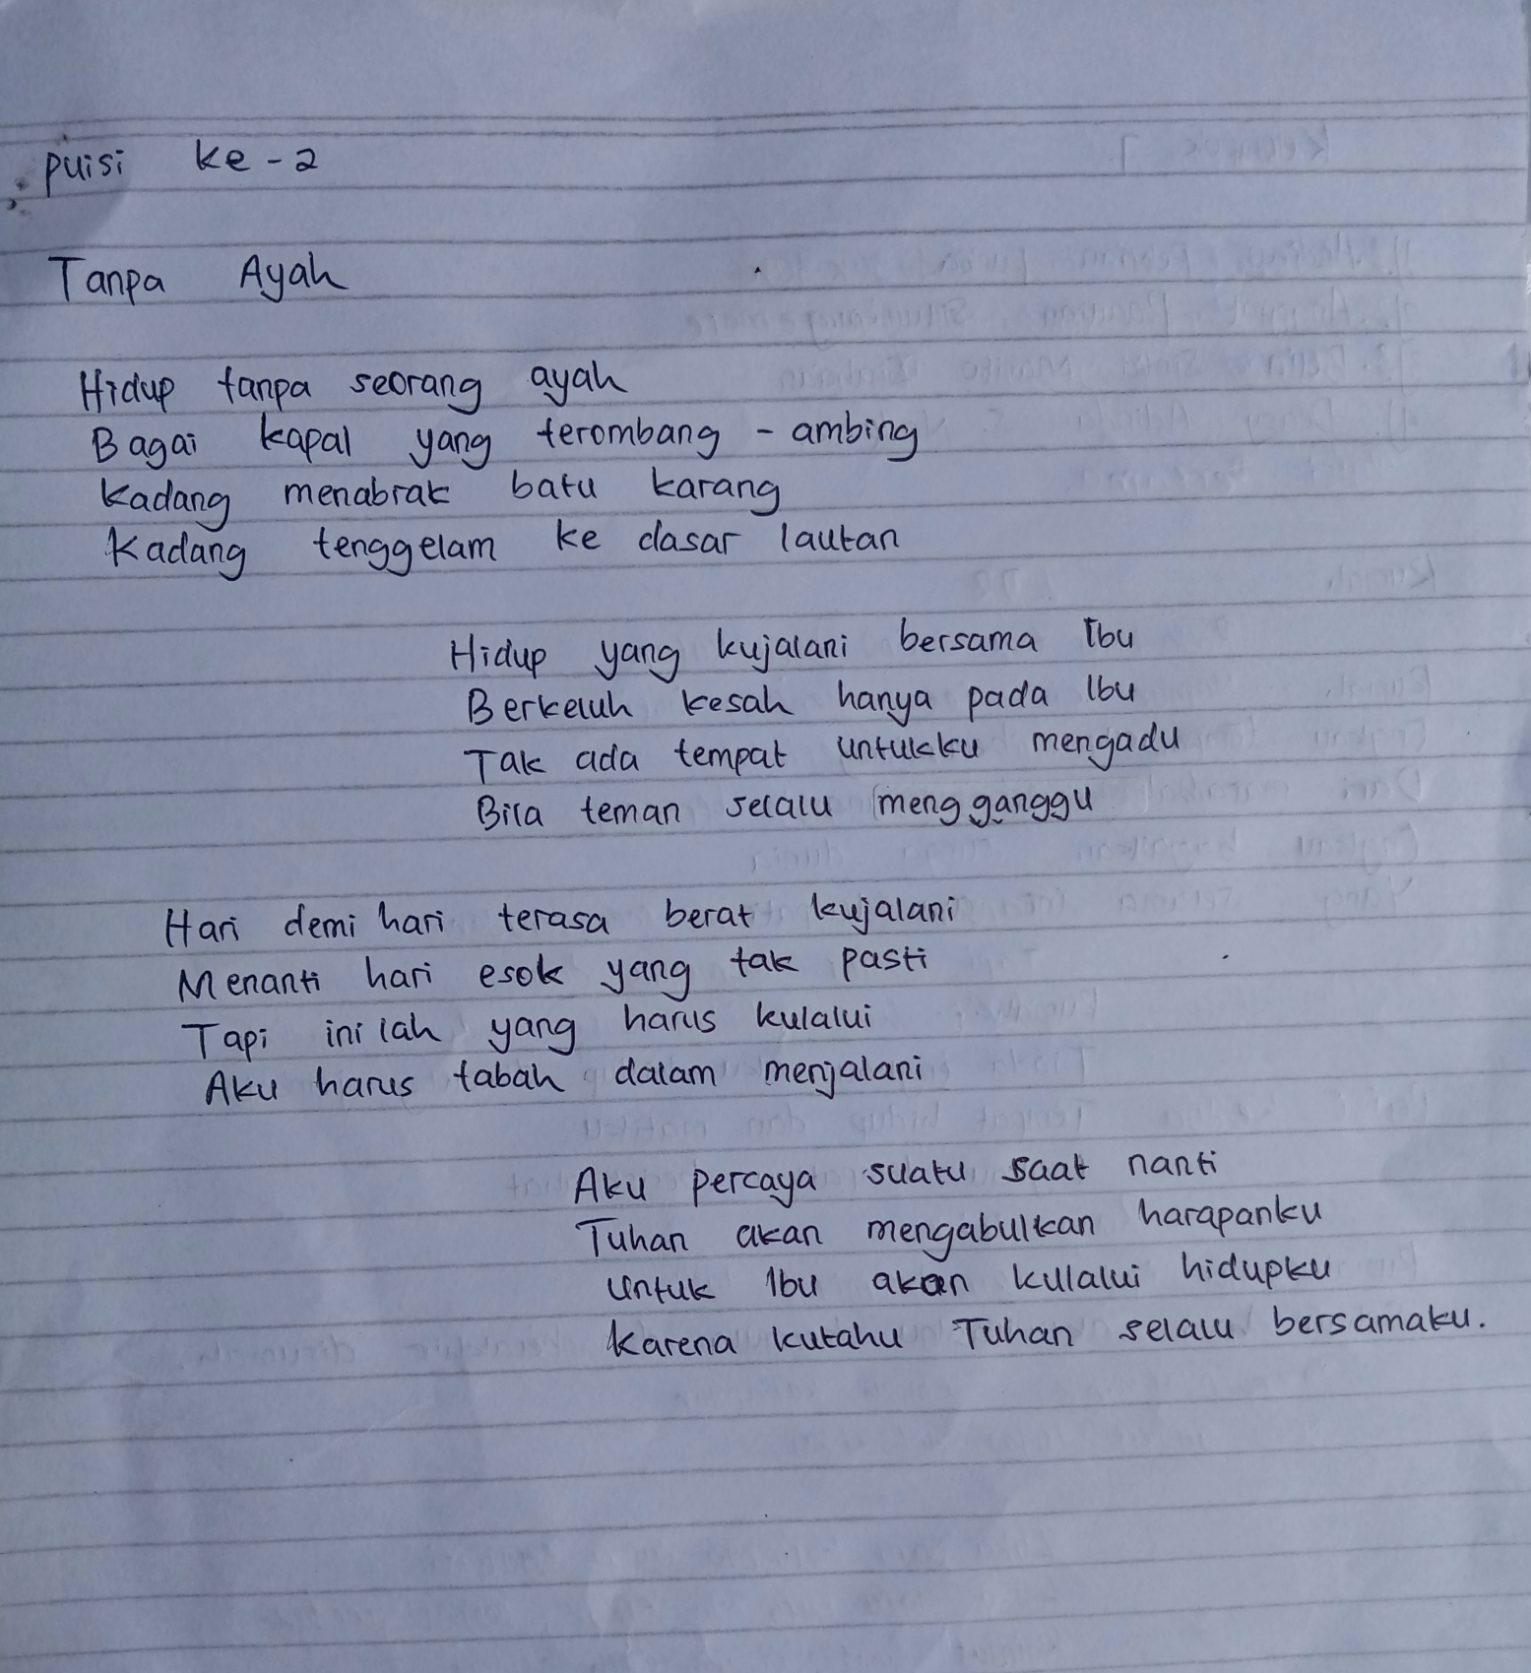 puisi ke-2
Tanpa Ayah
Hidup tanpa seorang ayah
Bagai kapal yang terombang-ambing
Kadang menabrak batu karang
Kadang tenggelam ke dasar lautan
Hidup yang kujalani bersama Ibu
Berkeluh kesah hanya pada Ibu
Tak ada tempat untukku mengadu
Bila teman selalu mengganggu
Hari demi hari terasa berat kujalani
Menanti hari esok yang tak pasti
Tapi inilah yang harus kulalui
Aku harus tabah dalam menjalani
Aku percaya suatu saat nanti
Tuhan akan mengabulkan harapanku
Untuk Ibu akan kulalui hidupku
Karena kutahu Tuhan selalu bersamaku.